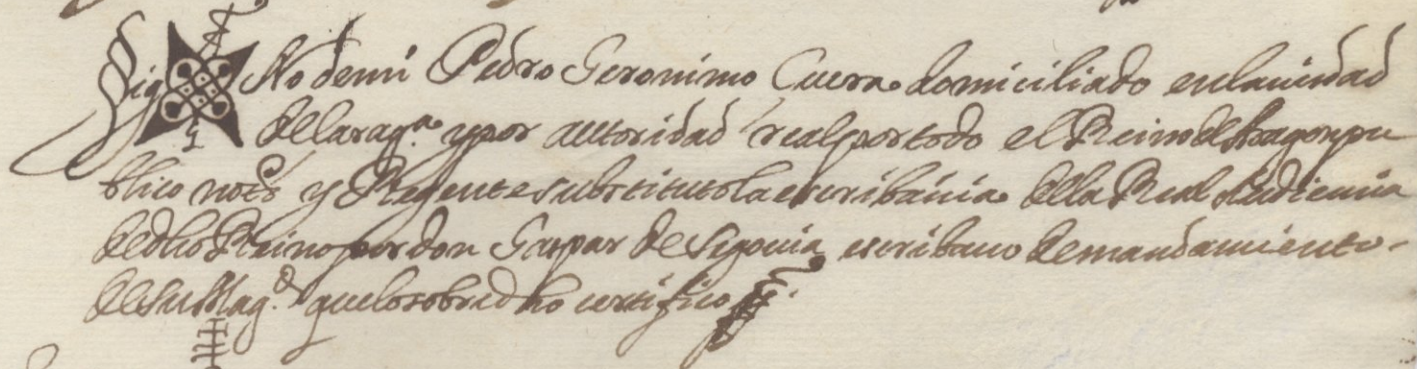 Sig No de mi Pedro Geronimo Cuerno domiciliado en la ciudad
de Çarag.ª y por auttoridad real por todo el Reino de Aragon pu
blico not.º y Regente substituto la escribania de la Real Audiencia
de dho Reino por don Gaspar de Segouia escribano de mandamiento
de su Mag.d que lo sobredho certifico